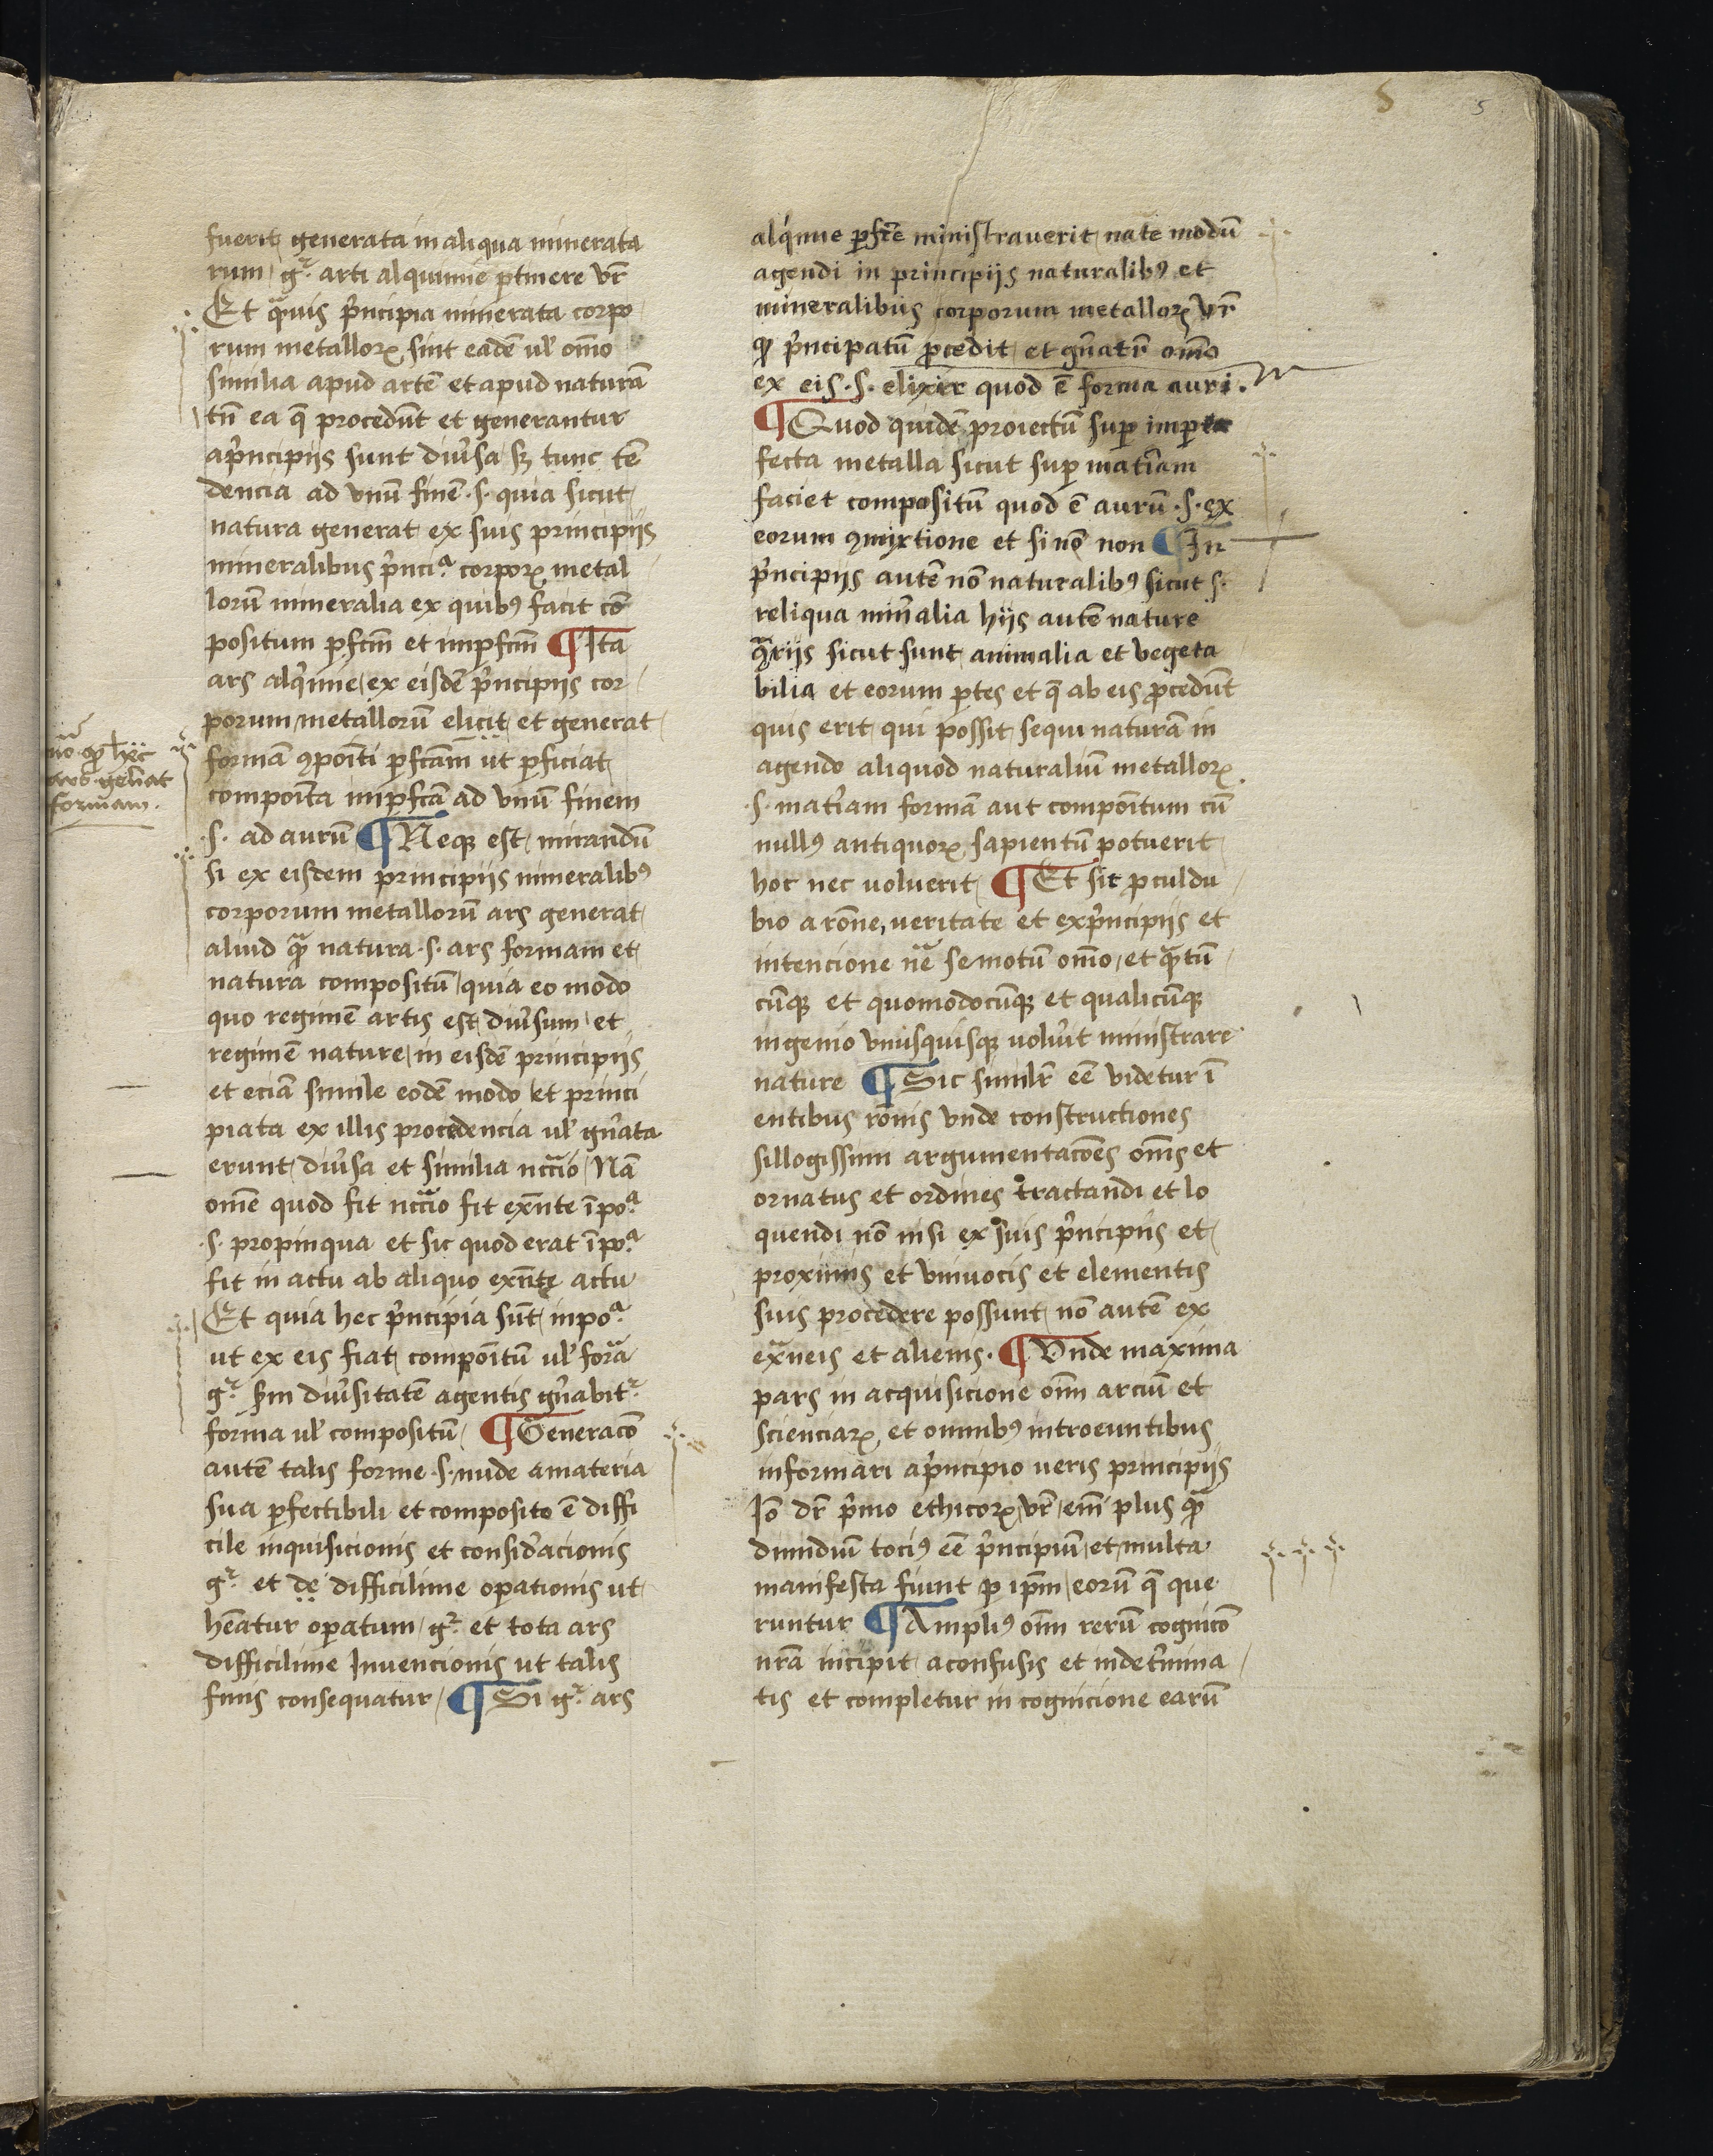 5
fuerit generata in aliqua minerata
rum gͬ arti alquimie ꝑtinere vr̄
Et qͣuis pͥncipia minerata corpo
rum metalloꝝ sint eadē ul̓ oīno
similia apud artē et apud naturā
tn̄ ea q̄ procedūt et generantur
apͥncipijs sunt diu̓sa sꝫ tunc tē
dencia ad vnū finē ·s· quia sicut
natura generat ex suis principijs
mineralibus pͥnciͣ corpoꝝ metal
lorū mineralia ex quibꝰ facit cō
positum ꝑfcm̄ et impfcm̄ ¶ Ita
ars alqͥmie ex eisdē pͥncipijs cor
porum metallorū elicit et generat
formā ꝯpoīti ꝑfcām ut ꝑficiat
compoīta impfcā ad vnū finem
·s· ad aurū ¶ Neqꝫ est mirandū
si ex eisdem principijs mineralibꝰ
corporum metallorū ars generat
aliud qͣꝫ natura ·s· ars formam et
natura compositū quia eo modo
quo regimē artis est diu̓sum et
regimē nature in eisdē principijs
et eciā simile eodē modo et princi
piata ex illis procedencia ul̓ gn̄ata
erunt diu̓sa et similia nccͣio Nā
om̄e quod fit nccͣio fit exn̄te ī poͣ
·s· propinqua et sic quod erat ī poͣ
fit in actu ab aliquo exn̄te actu
Et quia hec pͥncipia sūt inpoͣ
ut ex eis fiat compoītū ul̓ forͣa
gͬ scđm diu̓sitatē agentis gn̄abitͬ
forma ul̓ compositū ¶ Generacō
autē talis forme ·s· nude amateria
sua ꝑfectibili et composito ē diffi
cile inquisicionis et consid̓acionis
gͬ et de difficilime oꝑationis ut
hēatur oꝑatum gͬ et tota ars
difficilime Inuencionis ut talis
finis consequatur ¶ Si gͬ ars
hec
ars gen̄at
formam.
alqͥmie ꝑfcē ministrauerit nate modū
agendi in principijs naturalibꝰ et
mineralibus corporum metalloꝝ vr̄
ꝙ pͥncipatū ꝓcedit et gn̄atͬ om̄o
ex eis ·s· elixir quod ē forma auri.
¶ Quod quidē proiectū suꝑ imper
fecta metalla sicut suꝑ mat̓iam
faciet compositū quod ē aurū ·s· ex
eorum ꝯmixtione et si nō non ¶ In
pͥncipijs autē nō naturalibꝰ sicut s·
reliqua min̓alia hijs autē nature
ꝯͣrijs sicut sunt animalia et vegeta
bilia et eorum ꝑtes et q̄ ab eis ꝓcedūt
quis erit qui possit sequi naturā in
agendo aliquod naturaliū metalloꝝ
·s· mat̓iam formā aut compoītum cū
nullꝰ antiquoꝝ sapientū potuerit
hoc nec uoluerit ¶ Et sit ꝓculdu
bio a rōne, veritate et expͥncipijs et
intencione nͣe semotū om̄o et qͣꝫtū
cūqꝫ et quomodocūqꝫ et qualicūqꝫ
ingenio vnusquisqꝫ uolu̓it ministrare
nature ¶ Sic similr̄ eē videtur ī
entibus rōnis vnde constructiones
sillogissimi argumentacōes om̄s et
ornatus et ordines tractandi et lo
quendi nō nisi ex suis pͥncipijs et
proximis et vniuocis et elementis
suis procedere possunt nō autē ex
exͣneis et alienis. ¶ Vnde maxima
pars in acquisicione om̄ arciū et
scienciaꝝ et omnibꝰ introeuntibus
informari apͥncipio ueris principijs
Iō dr̄ pͥmo ethicoꝝ vr̄ em̄ plus qͣꝫ
dimidiū tociꝰ eē pͥncipiū et multa
manifesta fiunt ꝑ ipm̄ eorū q̄ que
runtur ¶ Ampliꝰ om̄ rerū cognicō
nrā incipit aconfusis et indet̓mina
tis et completur in cognicione earū